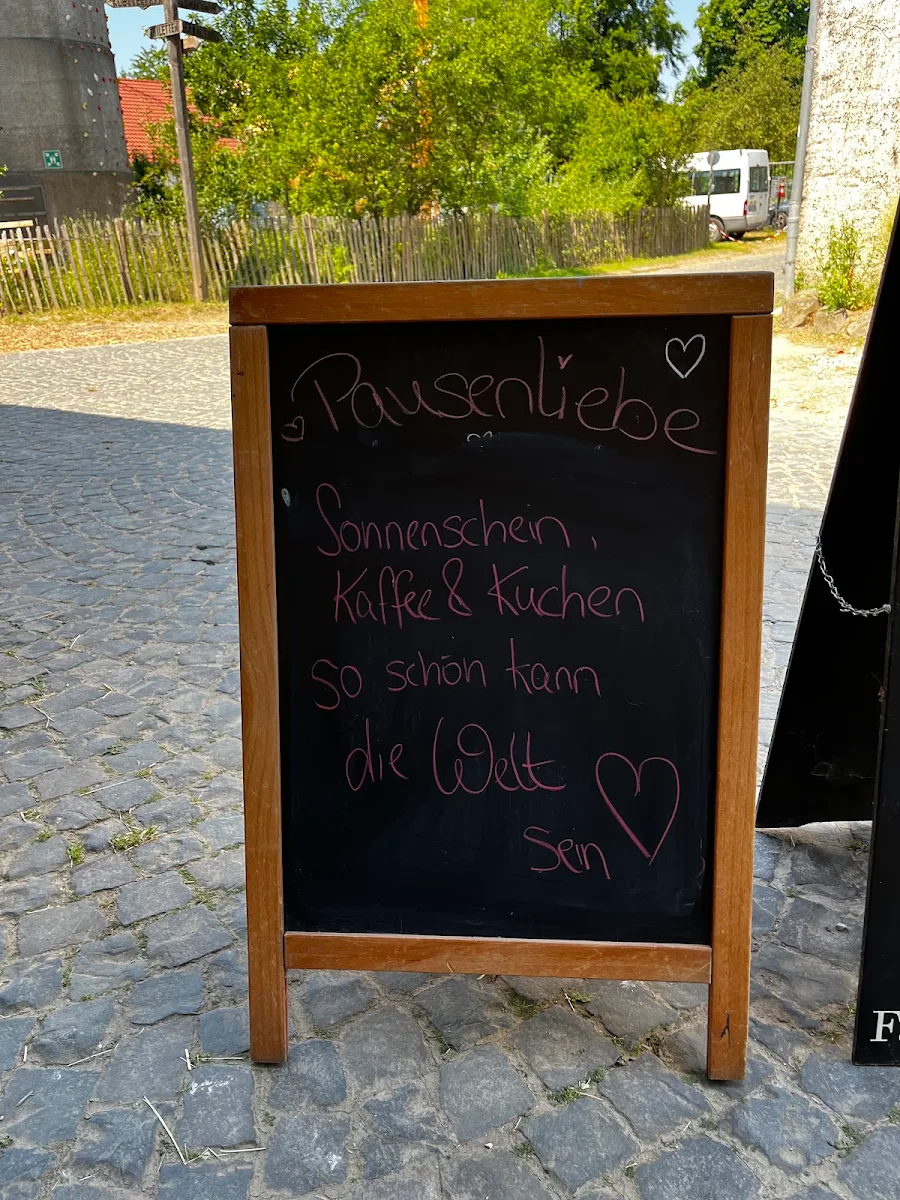 Pausenliebe
Sonnenschein,
Kaffee & Kuchen
so schön kann
die Welt
sein